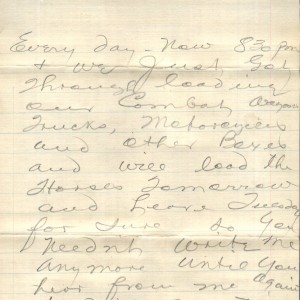 Every day - Now 830 pm
+ we Just Got
Through loading
our Combat Wagons
Trucks, Motorcycles
and other Boxes
and will load the
Horses Tomorrow
and Leave Tuesday
for Sure So you
Neednt Write Me
Anymore Until You
hear from me Again